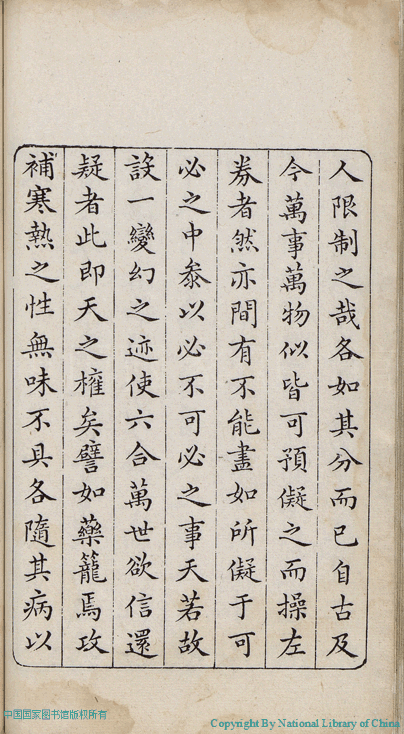 人限制之哉各如其分而已自古及
今萬事萬物似皆可預儗之而操左
券者然亦間有不能盡如所儗于可
必之中叅以必不可必之事天若故
設一變幻之迹使六合萬世欲信還
疑者此即天之權矣譬如藥籠焉攻
補寒熱之性無味不具各隨其病以
中国国家图书馆版权所有
Copyright By National Library of China